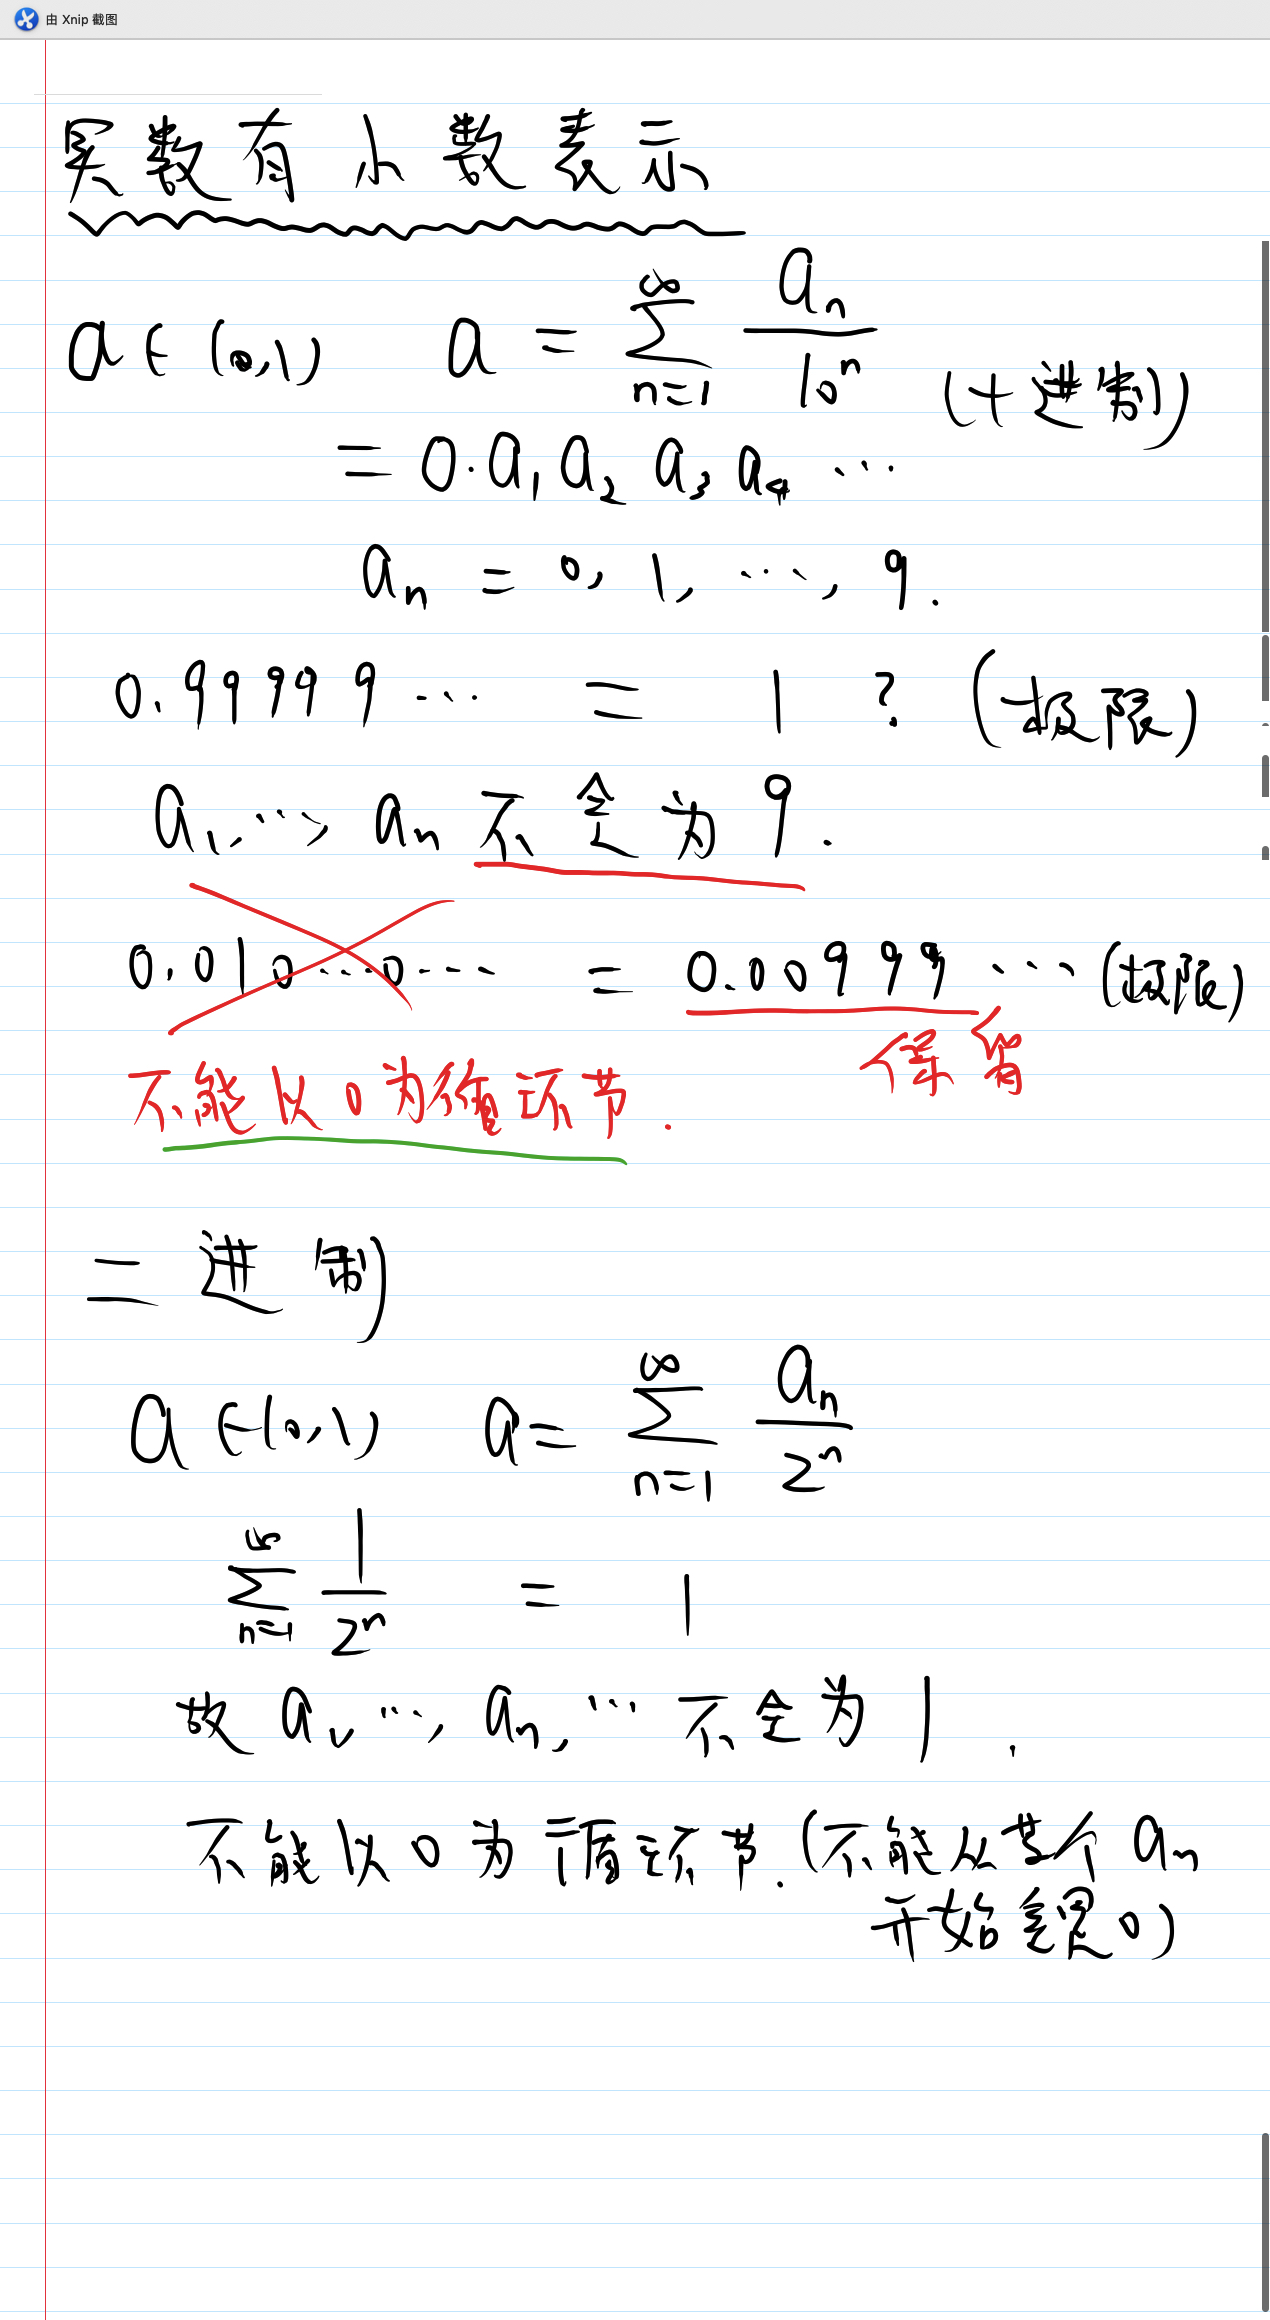 由 Xnip 截图
实数有小数表示
a ∈ (0,1) a = ∑_{n=1}^{∞} a_n/10^n (十进制)
= 0.a₁a₂a₃a₄⋯
a_n = 0, 1, ⋯, 9.
0.99999⋯ = 1 ? (极限)
a₁,⋯, a_n 不全为9.
0.010⋯0⋯ = 0.00999⋯ (极限)
保留
不能以0为循环节.
二进制
a ∈ (0,1) a = ∑_{n=1}^{∞} a_n/2^n
∑_{n=1}^{∞} 1/2^n = 1
故 a₁,⋯, a_n,⋯ 不全为1.
不能以0为循环节.(不能从某个a_n
开始全是0)